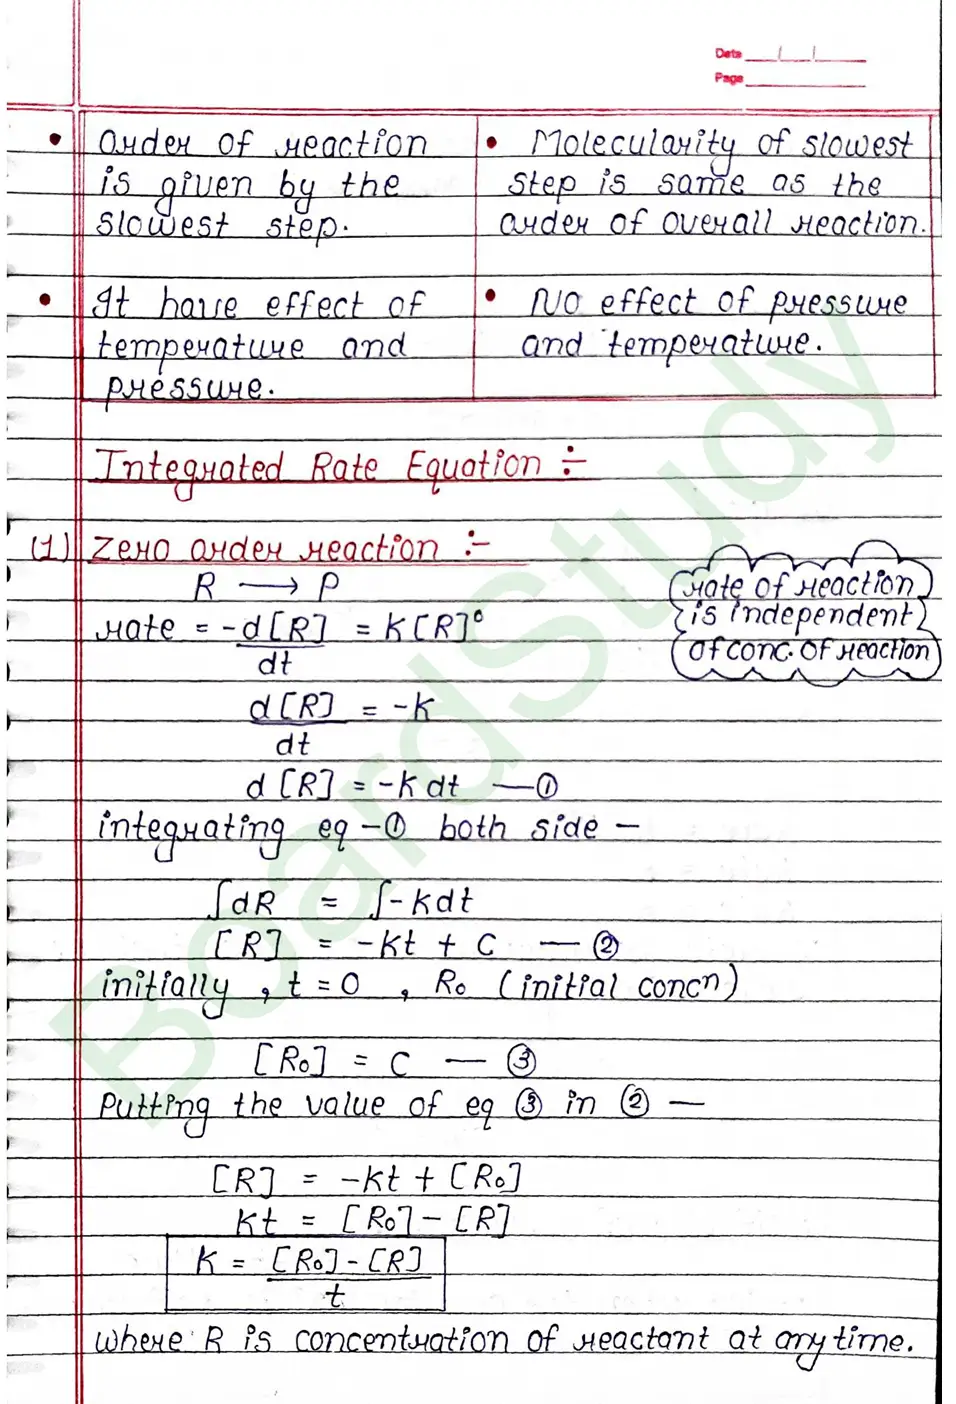 Date ___/___/___
Page ___
• Order of reaction
is given by the
slowest step.
• Molecularity of slowest
step is same as the
order of overall reaction.
• It have effect of
temperature and
pressure.
• No effect of pressure
and temperature.
Integrated Rate Equation ÷
(1) Zero order reaction :-
R ⟶ P
rate = -d[R]/dt = K[R]⁰
rate of reaction
is independent
of conc. of reaction
d[R]/dt = -K
d[R] = -K dt —①
integrating eq -① both side —
∫dR = ∫-Kdt
[R] = -Kt + C —②
initially , t = 0 , R₀ (initial concⁿ)
[R₀] = C —③
Putting the value of eq ③ in ② —
[R] = -Kt + [R₀]
Kt = [R₀] - [R]
K = [R₀] - [R] / t
where R is concentration of reactant at any time.
BoardStudy